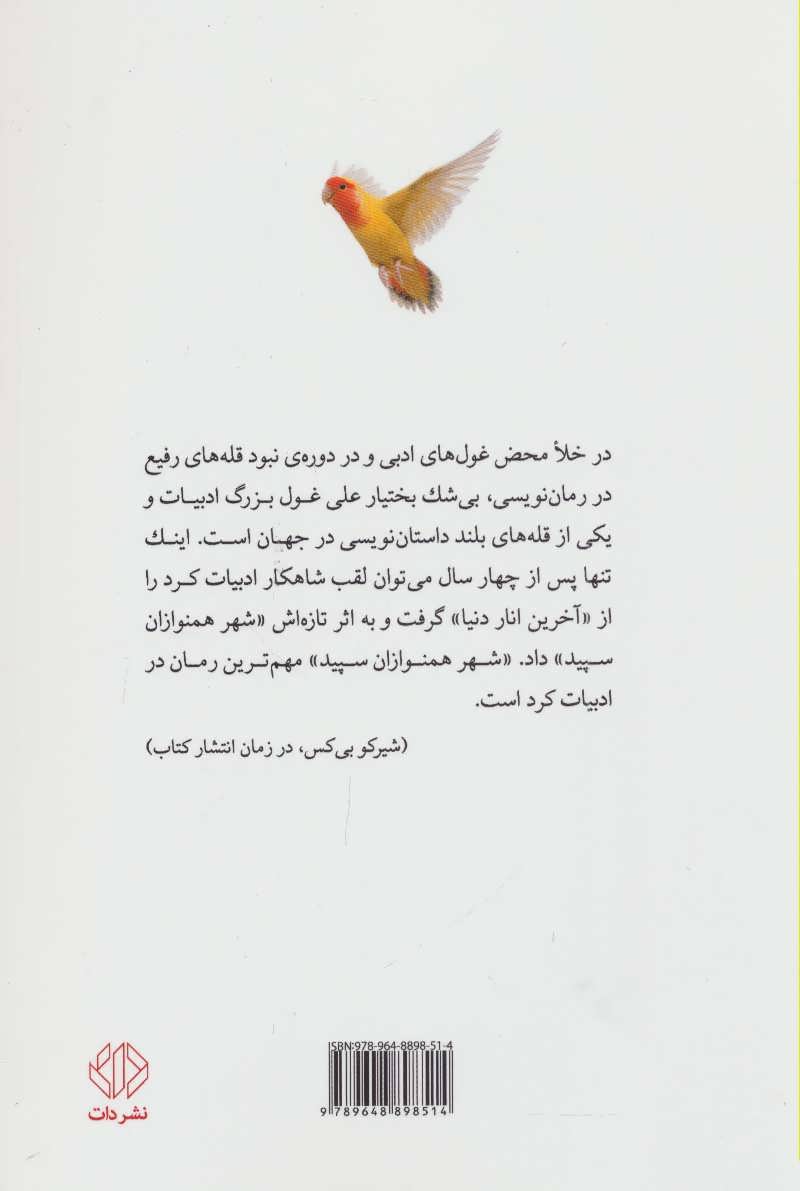 در خلأ محض غول‌های ادبی و در دوره‌ی نبود قله‌های رفیع
در رمان‌نویسی، بی‌شك بختیار علی غول بزرگ ادبیات و
یکی از قله‌های بلند داستان‌نویسی در جهان است. اینك
تنها پس از چهار سال می‌توان لقب شاهکار ادبیات کرد را
از «آخرین انار دنیا» گرفت و به اثر تازه‌اش «شهر همنوازان
سپید» داد. «شهر همنوازان سپید» مهم‌ترین رمان در
ادبیات کرد است.
(شیرکو بی‌کس، در زمان انتشار کتاب)
ISBN:978-964-8898-51-4
9 789648 898514
نشر دات